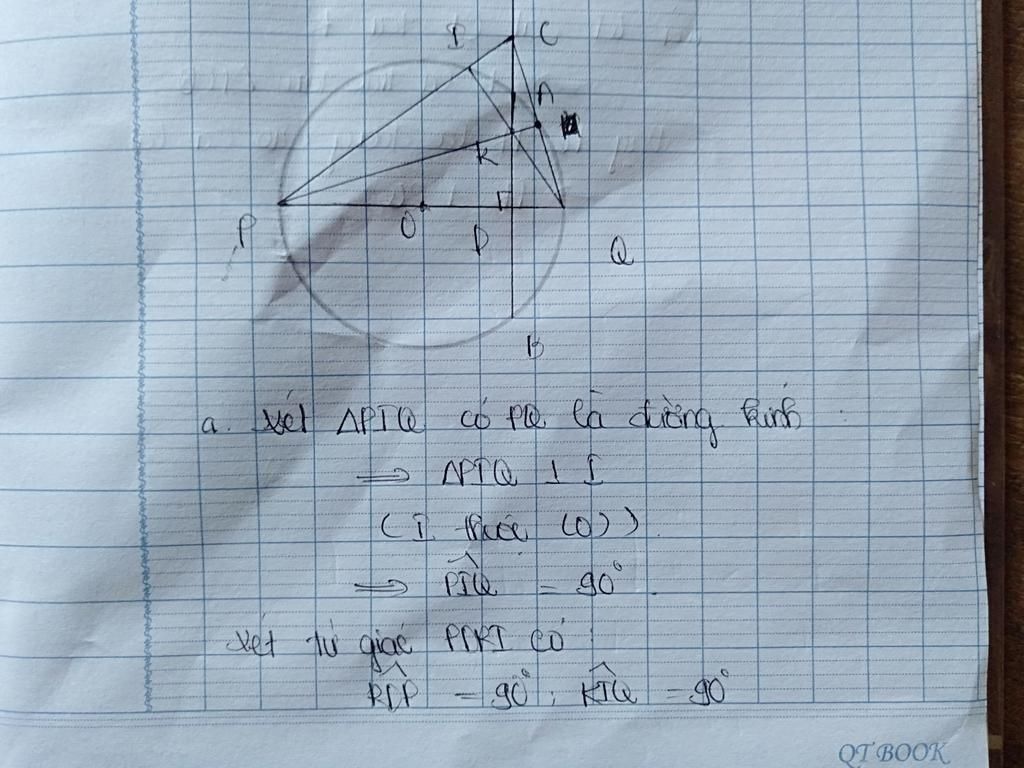 I C
A
K
P O D Q
B
a. Xét ΔPIQ có PQ là đường kính :
⟹ ΔPIQ ⊥ I
(I thuộc (O)).
⟹ \widehat{PIQ} = 90°.
Xét tứ giác PDKI có :
\widehat{KIP} = 90° ; \widehat{KIQ} = 90°
QT BOOK